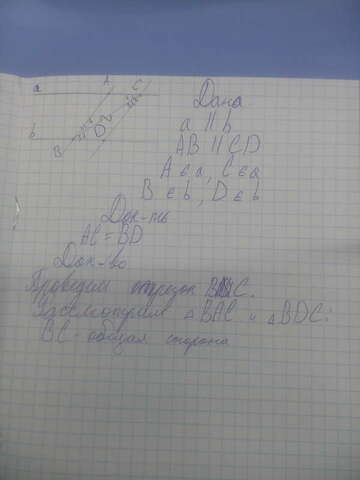 a
A C
b
B D
Дано
a || b
AB || CD
A ∈ a, C ∈ a
B ∈ b, D ∈ b
Док-ть
AC = BD
Док-во
Проведём отрезок BC.
Рассмотрим △BAC и △BDC:
BC - общая сторона